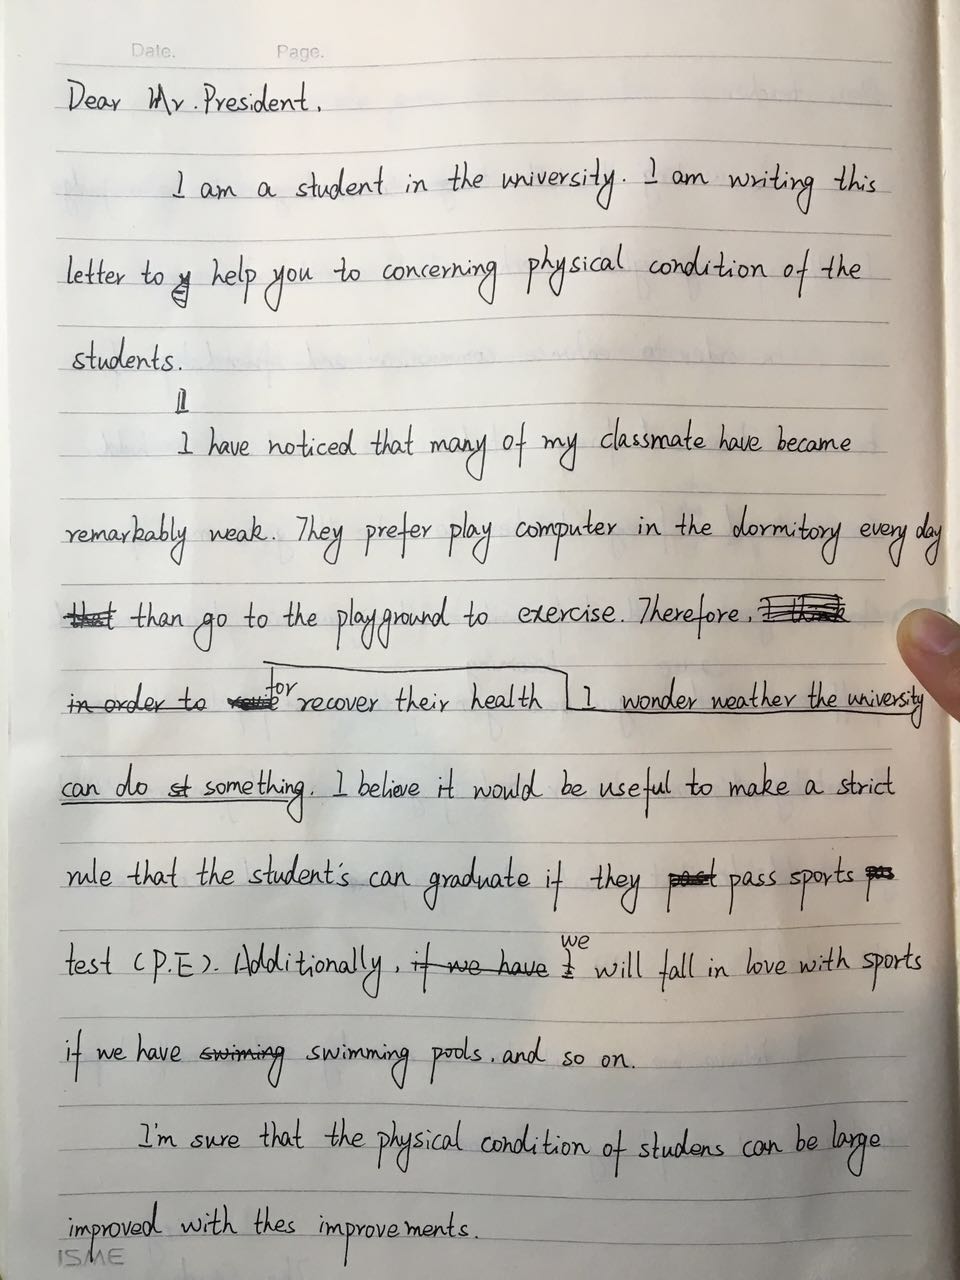 Date. Page.
Dear Mr. President,
I am a student in the university. I am writing this
letter to help you to concerning physical condition of the
students.
I have noticed that many of my classmate have became
remarkably weak. They prefer play computer in the dormitory every day
that than go to the playground to exercise. Therefore, I think
in order to for recover their health I wonder weather the university
can do st something. I believe it would be useful to make a strict
rule that the student's can graduate if they past pass sports pas
test (P.E). Additionally, if we have I we will fall in love with sports
if we have swiming swimming pools, and so on.
I'm sure that the physical condition of studens can be large
improved with thes improvements.
ISME